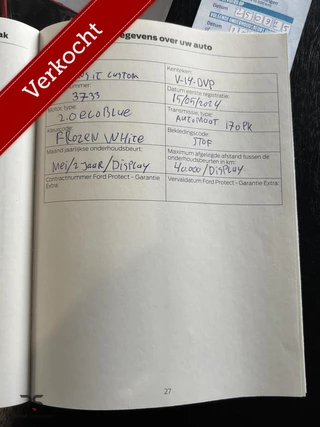 Verkocht
egevens over uw auto
Custom
Kenteken:
V-14-DVP
nummer:
3733
Datum eerste registratie:
15/05/2024
Motor, type:
2.0 ecoBlue
Transmissie, type:
AUTOMAAT 170 PK
Kleurcode:
FROZEN WHITE
Bekledingscode:
STOF
Maand jaarlijkse onderhoudsbeurt:
Mei/2 Jaar/Display
Maximum afgelegde afstand tussen de
onderhoudsbeurten in km:
40.000/Display
Contractnummer Ford Protect - Garantie
Extra:
Vervaldatum Ford Protect - Garantie Extra:
27